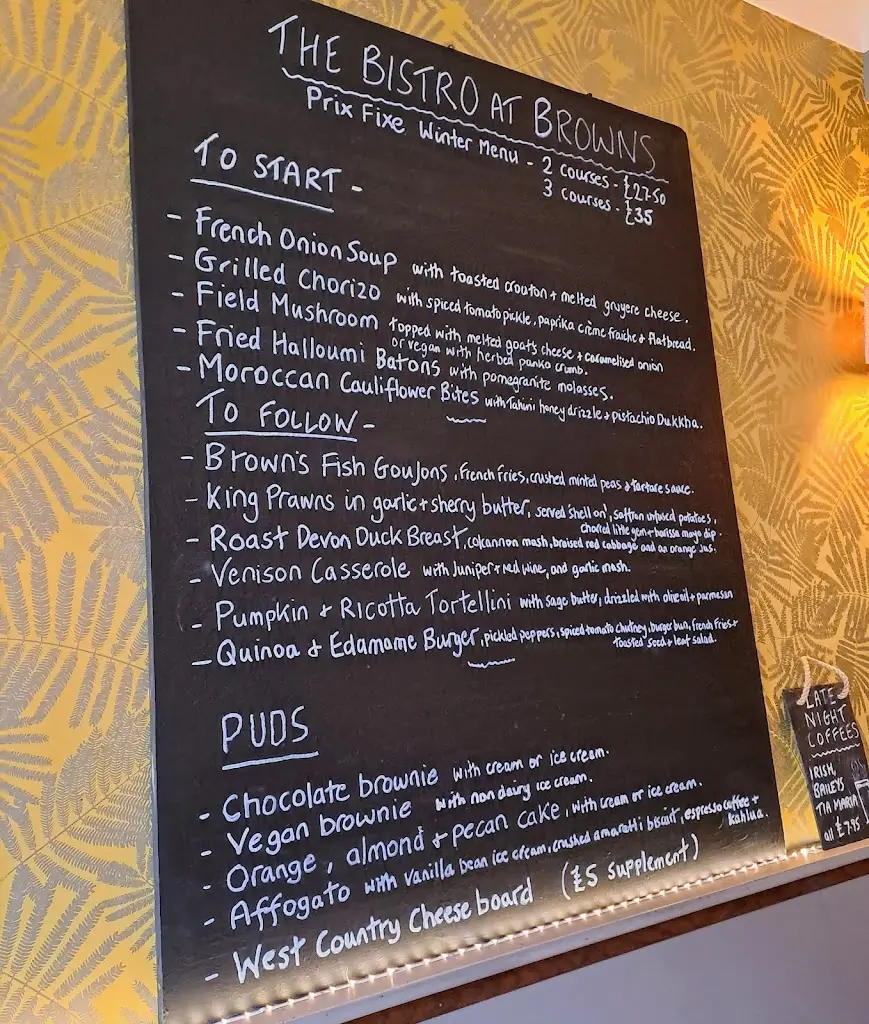 THE BISTRO AT BROWNS
Prix Fixe Winter Menu - 2 courses - £27.50
3 courses - £35
TO START -
- French Onion Soup with toasted crouton + melted gruyere cheese.
- Grilled Chorizo with spiced tomato pickle, paprika crème fraiche & flatbread.
- Field Mushroom topped with melted goats cheese + caramelised onion
or vegan with herbed panko crumb.
- Fried Halloumi Batons with pomegranite molasses.
- Moroccan Cauliflower Bites with Tahini honey drizzle + pistachio Dukkha.
TO FOLLOW -
- Brown's Fish Goujons, French fries, crushed minted peas & tartare sauce.
- King Prawns in garlic + sherry butter, served 'shell on', saffron infused potatoes,
charred little gem + harissa mayo dip.
- Roast Devon Duck Breast, colcannon mash, braised red cabbage and an orange jus.
- Venison Casserole with Juniper + red wine, and garlic mash.
- Pumpkin & Ricotta Tortellini with sage butter, drizzled with olive oil + parmesan
- Quinoa & Edamame Burger, pickled peppers, spiced tomato chutney, burger bun, French Fries +
toasted seed + leaf salad.
PUDS
- Chocolate brownie with cream or ice cream.
- Vegan brownie with non dairy ice cream.
- Orange, almond + pecan cake, with cream or ice cream.
- Affogato with vanilla bean ice cream, crushed amaretti biscuit, espresso coffee +
kahlua.
- West Country Cheese board (£5 supplement)
LATE
NIGHT
COFFEES
IRISH,
BAILEYS
TIA MARIA
all £7.95